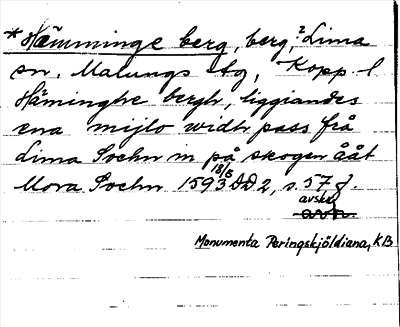 *Hämminge berg, berg, ? Lima
sn. Malungs tg, Kopp. l
Häminghe bergh, liggiandes
ena mijlo widh pass frå
Lima Sochn in på skogen ååt
Mora Sochn 1593 18/5 DD 2, s. 57 f.
avskr.
Monumenta Peringskjöldiana, KB